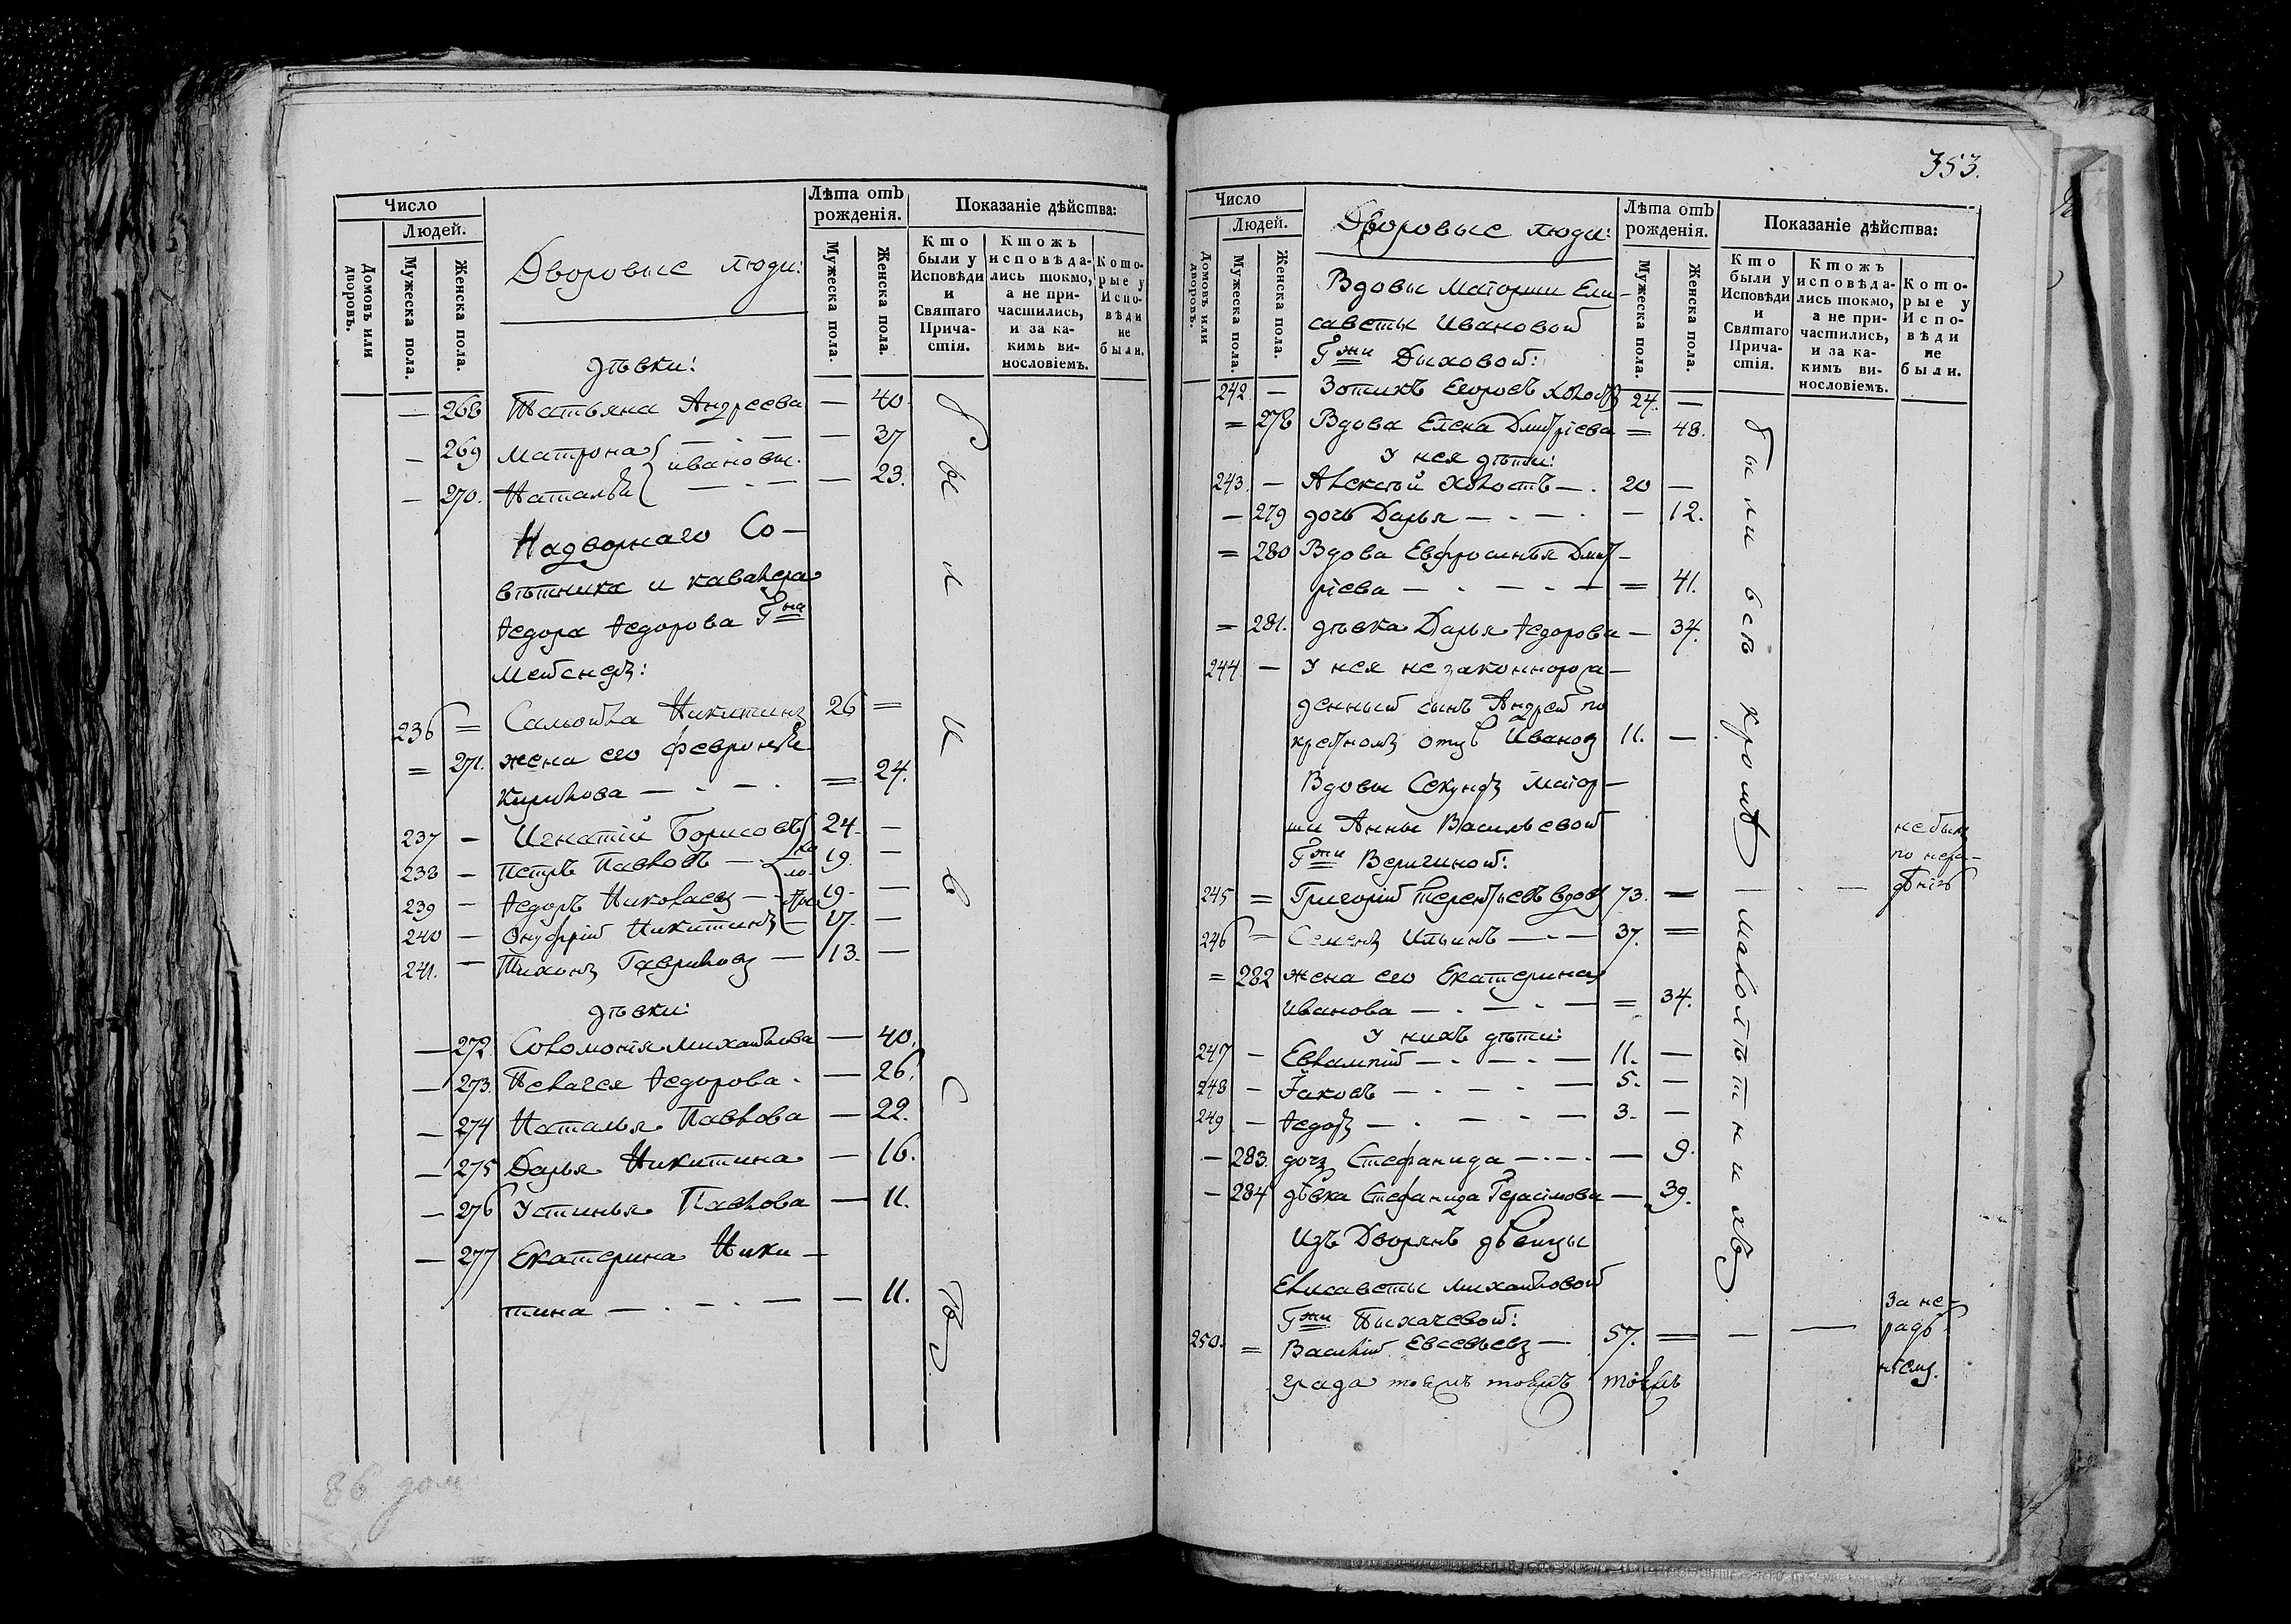 Число
Людей.
Домовъ или дворовъ.
Мужеска пола.
Женска пола.
Дворовые люди:
Лѣта отъ рожденія.
Мужеска пола.
Женска пола.
Показаніе дѣйства:
Кто были у Исповѣди и Святаго Причастія.
Ктожъ исповѣдались токмо, а не причастились, и за какимъ винословіемъ.
Которые у Исповѣди не были.
дѣвки:
— 268 Татьяна Андреева — 40.
— 269 Матрона — . — — 37
ивановы.
— 270. Наталья — . — — 23.
Надворнаго Со-
вѣтника и кавалера
Ѳедора Ѳедорова Гна
236 = Самойла Никитинъ 26 =
= 271. жена его Февронья
Кирилова — . — . = 24.
237 — Игнатій Борисовъ 24. —
238 — Петръ Павловъ — . — 19. —
239 — Ѳедоръ Николаевъ — 19. —
хо
ло
сты
240 — Онуфрій Никитинъ — 17. —
241. — Тихонъ Гавриловъ — 13. —
дѣвки:
— 272. Соломонія Михайлова — 40.
— 273. Пелагея Ѳедорова . — 26.
— 274 Наталья Павлова — 22.
— 275 Дарья Никитина — 16.
— 276 Устинья Павлова — 11.
— 277 Екатерина Ники-
тина — . — . — — 11.
были всѣ
86 дом
353.
Число
Людей.
Домовъ или дворовъ.
Мужеска пола.
Женска пола.
Дворовые люди:
Лѣта отъ рожденія.
Мужеска пола.
Женска пола.
Показаніе дѣйства:
Кто были у Исповѣди и Святаго Причастія.
Ктожъ исповѣдались токмо, а не причастились, и за какимъ винословіемъ.
Которые у Исповѣди не были.
Вдовы Маіорши Ели-
саветы Ивановой
Гжи Дыховой:
242. — Зотикъ Егоровъ холостъ 24. —
= 278 Вдова Елена Дмитріева = 48.
У нея дѣти:
243. — Алексѣй холостъ — . 20 —
— 279 дочь Дарья — . — . — 12.
= 280 Вдова Евфросинья Дмит-
ріева — . — . — = 41.
= 281. дѣвка Дарья Ѳедорова — 34.
244 — У нея незаконнорож-
денный сынъ Андрей по
крестномъ отцѣ Ивановъ 11. —
Вдовы Секундъ Маіор-
ши Анны Васильевой
Гжи Веригиной:
245 = Григорій Терентьевъ вдовъ 73. =
не былъ
по нера-
дѣнію
246 = Семенъ Ильинъ — . — 37. =
= 282 жена его Екатерина
Иванова — . — . — = 34.
У нихъ дѣти:
247 — Евлампій — . — . — 11. —
248 — Іаковъ — . — . — 5. —
249 — Ѳедоръ — . — . — 3. —
— 283. дочь Стефанида — . — . — 9.
— 284 дѣвка Стефанида Герасимова — 39.
Изъ Дворянъ дѣвицы
Елисаветы Михайловой
Гжи Пыхачевой:
250. = Василій Евсевьевъ — 57. = — —
За не-
радѣ-
ніемъ.
были всѣ кромѣ малолѣтнихъ